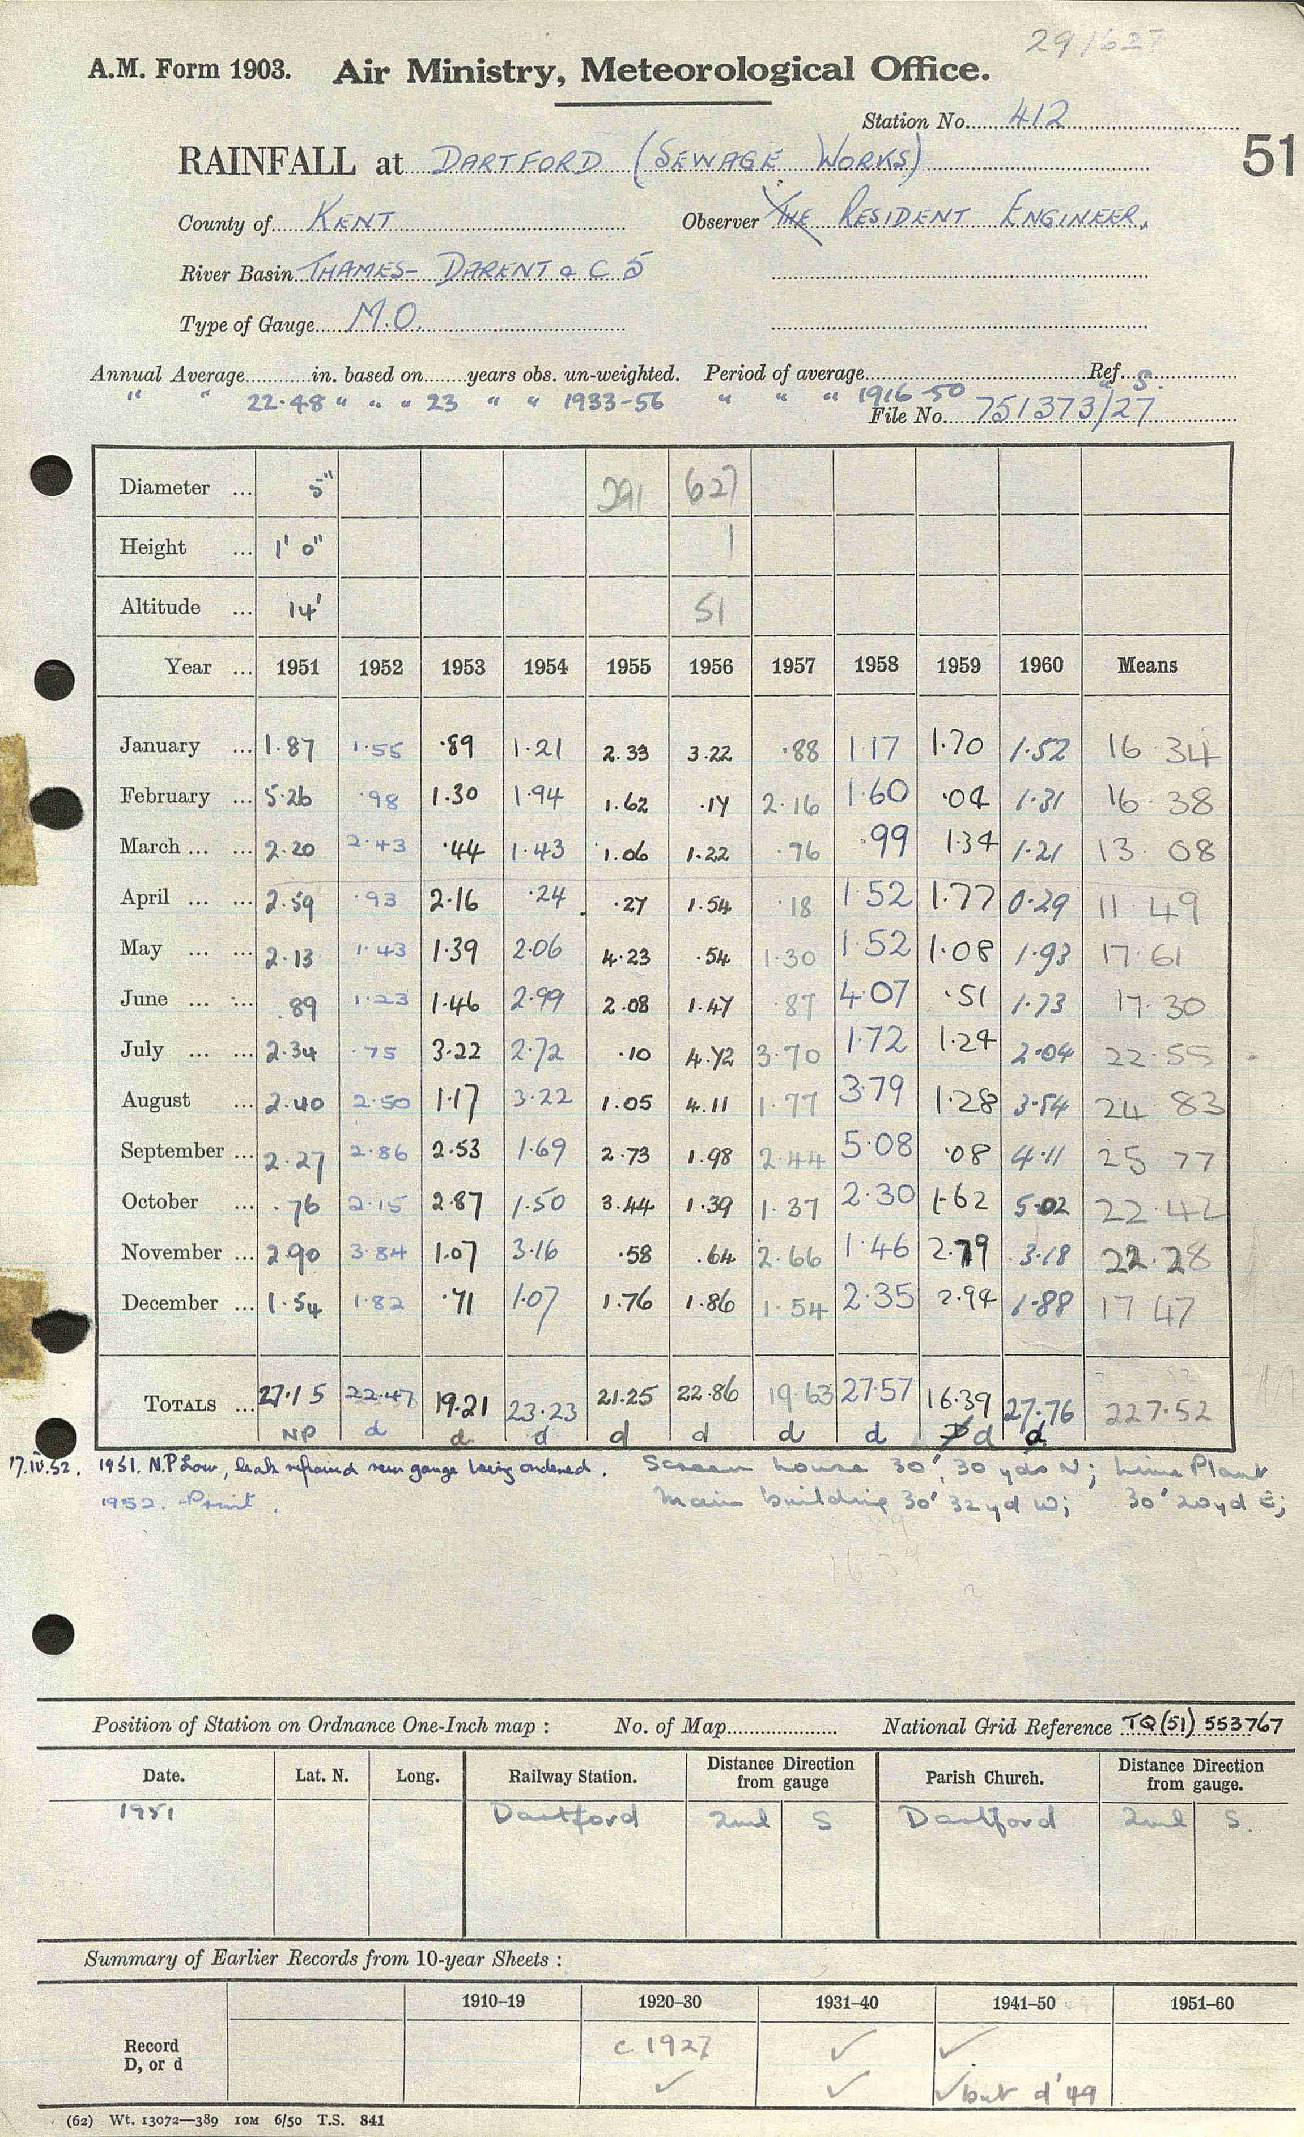 29/627
A.M. Form 1903. Air Ministry, Meteorological Office.
Station No. 412
RAINFALL at DARTFORD (SEWAGE WORKS) 51
County of KENT Observer THE RESIDENT ENGINEER,
River Basin THAMES- DARENT & C 5
Type of Gauge M.O.
Annual Average in. based on years obs. un-weighted. Period of average Ref. S.
" " 22.48 " " " 23 " " 1933-56 " " " 1916-50
File No. 751373/27
Diameter ... 5" 291 627
Height ... 1' 0" 1
Altitude ... 14' 51
Year ... 1951 1952 1953 1954 1955 1956 1957 1958 1959 1960 Means
January ... 1.87 1.55 .89 1.21 2.33 3.22 .88 1.17 1.70 1.52 16 34
February ... 5.26 .98 1.30 1.94 1.62 .17 2.16 1.60 .04 1.31 16.38
March ... ... 2.20 2.43 .44 1.43 1.06 1.22 .76 .99 1.34 1.21 13 08
April ... ... 2.59 .93 2.16 .24 .27 1.54 .18 1.52 1.77 0.29 11 49
May ... ... 2.13 1.43 1.39 2.06 4.23 .54 1.30 1.52 1.08 1.93 17.61
June ... ... .89 1.23 1.46 2.99 2.08 1.47 .87 4.07 .51 1.73 17.30
July ... ... 2.34 .75 3.22 2.72 .10 4.72 3.70 1.72 1.24 2.04 22.55
August ... 2.40 2.50 1.17 3.22 1.05 4.11 1.77 3.79 1.28 3.54 24 83
September ... 2.27 2.86 2.53 1.69 2.73 1.98 2.44 5.08 .08 4.11 25 77
October ... .76 2.15 2.87 1.50 3.44 1.39 1.37 2.30 1.62 5.02 22.42
November ... 2.90 3.84 1.07 3.16 .58 .64 2.66 1.46 2.79 3.18 22.28
December ... 1.54 1.82 .71 1.07 1.76 1.86 1.54 2.35 2.94 1.88 17 47
TOTALS ... 27.15 22.47 19.21 23.23 21.25 22.86 19.63 27.57 16.39 27.76 227.52
NP d d d d d d d d d
17.IV.52. 1951. N.P Low, leak repaired new gauge being ordered. Screen house 30', 30 yds N; Lime Plant
1952. Print. Main building 30' 32yd W; 30' 20yd E;
Position of Station on Ordnance One-Inch map : No. of Map National Grid Reference TQ(51) 553767
Date. Lat. N. Long. Railway Station. Distance from gauge Direction Parish Church. Distance from gauge. Direction
1951 Dartford 2ml S Dartford 2ml S.
Summary of Earlier Records from 10-year Sheets :
1910–19 1920–30 1931–40 1941–50 1951–60
Record c 1927 ✓ ✓
D, or d ✓ ✓ ✓ but d '49
(62) Wt. 13072—389 10M 6/50 T.S. 841